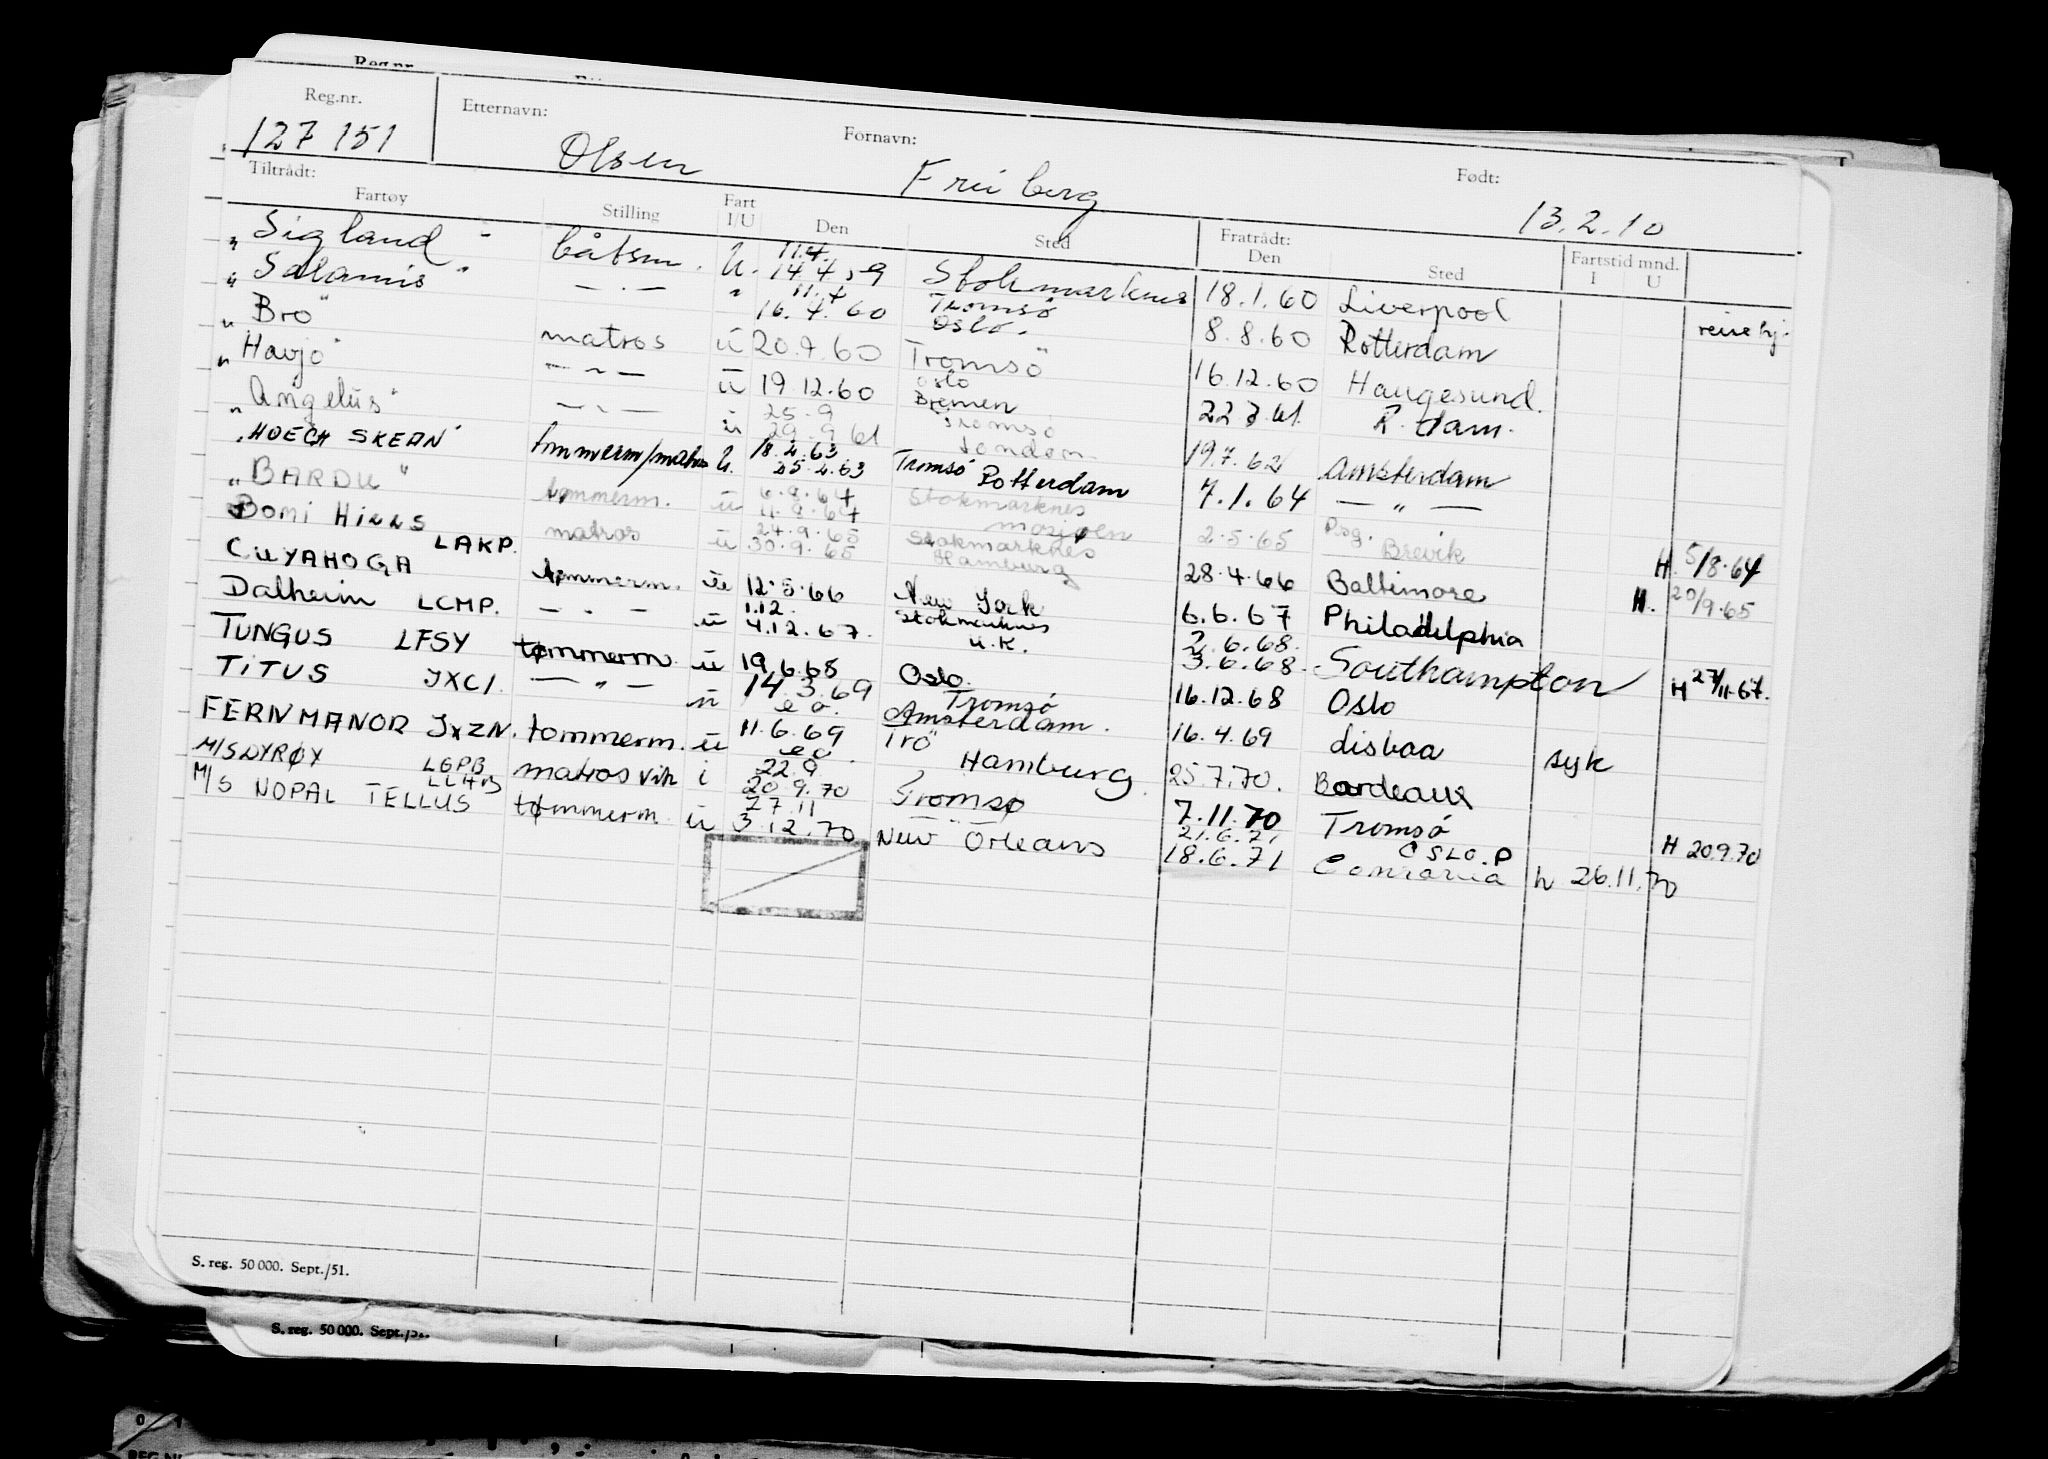 Reg.nr.
Reg.nr. Etternavn: Fornavn: Født:
127 151 Olsen Freiberg 13.2.10
Tiltrådt: Fratrådt: Fartstid mnd.
Fartøy Stilling Fart I/U Den Sted Den Sted I U
"Sigland" båtsm. U. 11.4. 14.4.59 Stokmarknes 18.1.60 Liverpool
"Salamis" — . — " 11.4 16.4.60 Tromsö Oslo. 8.8.60 Rotterdam reise hj.
"Bro" matros ü 20.9.60 Tromsö 16.12.60 Haugesund.
"Havjo" — " — ü 19.12.60 Oslo Bremen 22.7.61. R.dam.
"Angelus" — " — ü 25.9 29.9.61 Tromsö London 19.7.62 Amsterdam
"HOEGH SKEAN" tømmerm/matros U. 18.4.63 25.4.63 Tromsö Rotterdam 7.1.64 — " —
"BARDU" tømmerm. ü 6.8.64 11.8.64 Stokmarknes Mosjøen 2.5.65 Psg. Brevik H. 5/8.64
Bomi Hills LAKP. matros ü 24.9.65 30.9.65 Stokmarknes Hamburg 28.4.66 Baltimore H. 20/9.65
CUYAHOGA tømmerm. ü 12.5.66 New York 6.6.67 Philadelphia
Dalheim LCMP. — . — ü 1.12. 4.12.67. Stokmarknes U.K. 2.6.68. 3.6.68. Southampton H 27/11.67.
TUNGUS LFSY tømmerm. ü 19.6.68 Oslo. 16.12.68 Oslo
TITUS JXCI — " — ü 14.3.69 e.o. Tromsö Amsterdam. 16.4.69 Lisboa syk
FERNMANOR JXZN. tømmerm. ü 11.6.69 eo Trö Hamburg. 25.7.70. Bordeaux
M/S DYRØY LGPB LLHB matros vik i 22.9 20.9.70 Tromsø 7.11.70 Tromsö H 20.9.70
M/S NOPAL TELLUS tømmerm. ü 27.11 3.12.70 — " — New Orleans 21.6.71 18.6.71 OSLO.P h 26.11.70
S. reg. 50 000. Sept./51.
S. reg. 50 000. Sept./52.